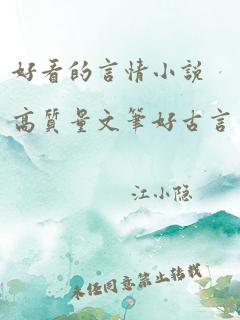 好看的言情小説
高質量文筆好古言
江小隐
未经同意禁止转载